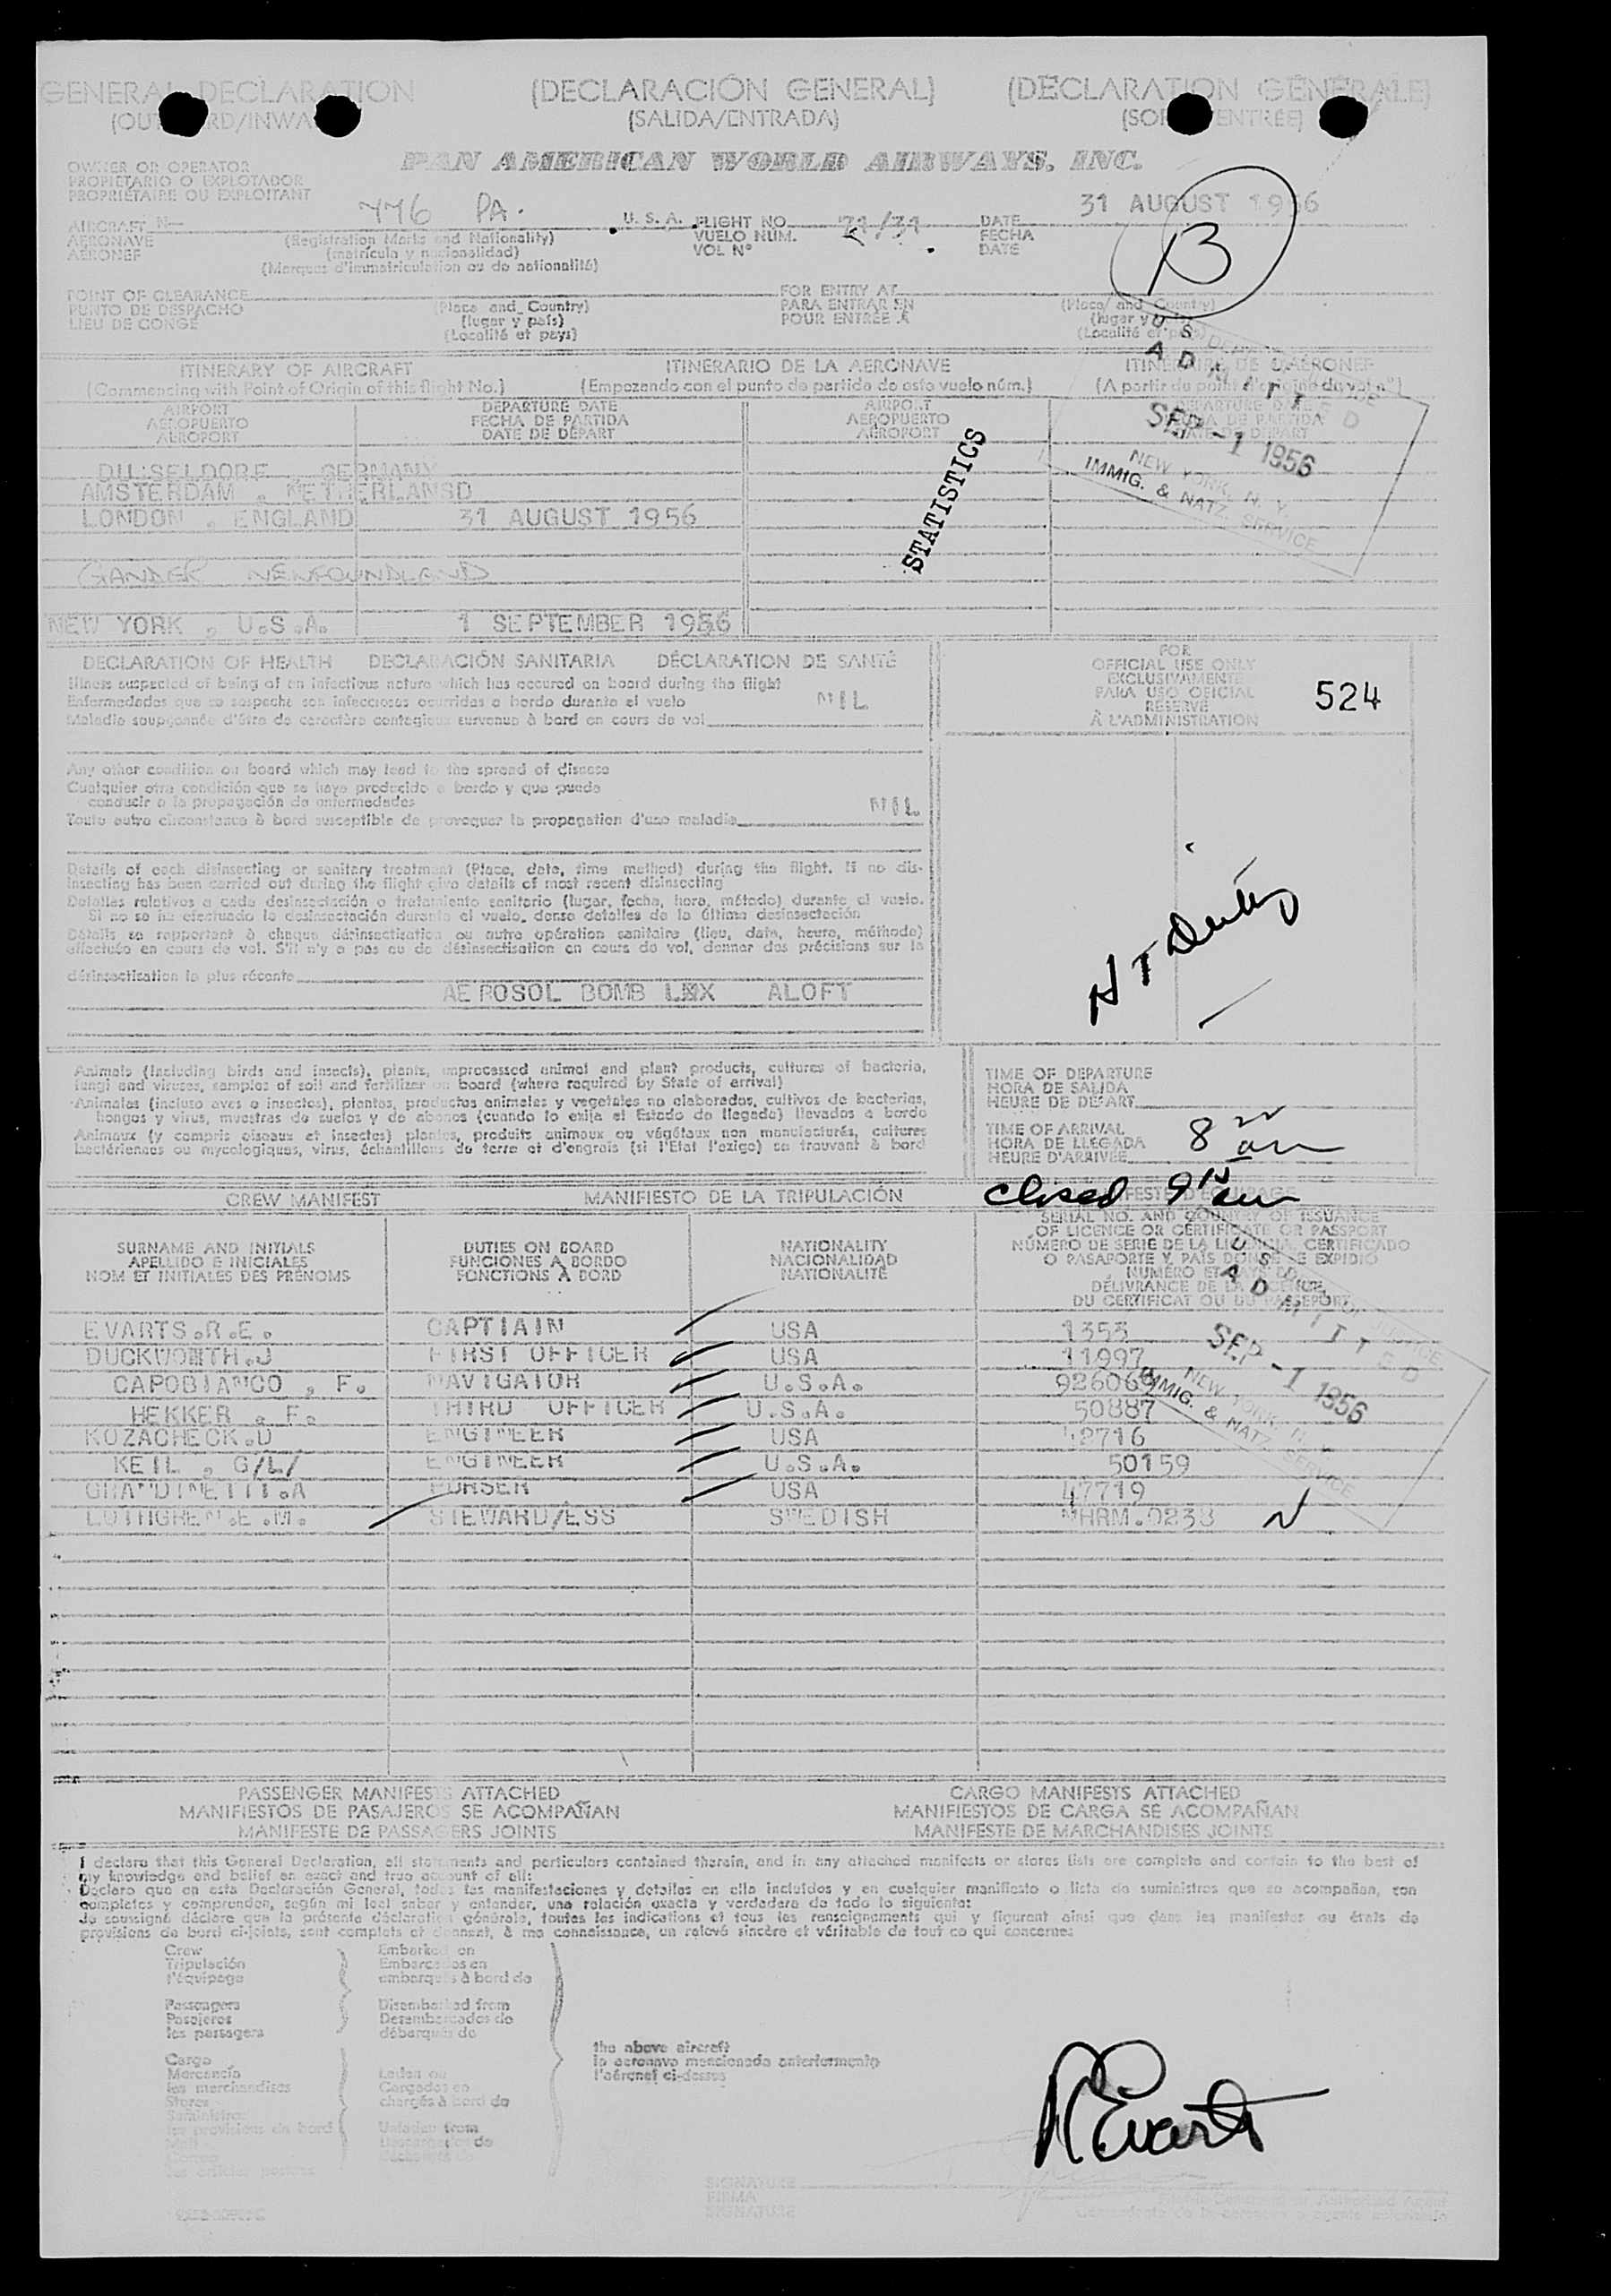 GENERAL DECLARATION (DECLARACIÓN GENERAL) (DÉCLARATION GÉNÉRALE)
(SALIDA/ENTRADA)
PAN AMERICAN WORLD AIRWAYS, INC.
OWNER OR OPERATOR
PROPIETARIO O EXPLOTADOR
PROPRIÉTAIRE OU EXPLOITANT
AIRCRAFT N— 776 PA. U. S. A. FLIGHT NO. 71/31 DATE 31 AUGUST 1956
AERONAVE (Registration Marks and Nationality) VUELO NUM. FECHA
AÉRONEF (matrícula y nacionalidad) VOL N° DATE
(Marques d'immatriculation ou de nationalité)
B
POINT OF CLEARANCE FOR ENTRY AT
PUNTO DE DESPACHO (Place and Country) PARA ENTRAR EN (Place and Country)
LIEU DE CONGÉ (lugar y país) POUR ENTRÉE À
(Localité et pays)
ITINERARY OF AIRCRAFT ITINERARIO DE LA AERONAVE
(Commencing with Point of Origin of this flight No.) (Empezando con el punto de partida de este vuelo núm.)
AIRPORT DEPARTURE DATE AIRPORT
AEROPUERTO FECHA DE PARTIDA AEROPUERTO
AÉROPORT DATE DE DÉPART AÉROPORT
ADMITTED
SEP -1 1956
NEW YORK, N. Y.
IMMIG. & NATZ. SERVICE
STATISTICS
DUSSELDORF GERMANY
AMSTERDAM , NETHERLANSD
LONDON , ENGLAND 31 AUGUST 1956
GANDER NEWFOUNDLAND
NEW YORK , U.S.A. 1 SEPTEMBER 1956
DECLARATION OF HEALTH DECLARACIÓN SANITARIA DÉCLARATION DE SANTÉ
Illness suspected of being of an infectious nature which has occured on board during the flight
Enfermedades que se sospeche son infecciosas ocurridas a bordo durante el vuelo NIL
Maladie soupçonnée d'être de caractère contagieux survenue à bord en cours de vol
FOR
OFFICIAL USE ONLY
EXCLUSIVAMENTE
PARA USO OFICIAL
RÉSERVÉ
À L'ADMINISTRATION
524
Any other condition on board which may lead to the spread of disease
Cualquier otra condición que se haya producido a bordo y que pueda
conducir a la propagación de enfermedades
Toute autre circonstance à bord susceptible de provoquer la propagation d'une maladie NIL
Details of each disinsecting or sanitary treatment (Place, date, time method) during the flight. If no dis-
insecting has been carried out during the flight give details of most recent disinsecting
Detalles relativos a cada desinsectación o tratamiento sanitario (lugar, fecha, hora, método) durante el vuelo.
Si no se ha efectuado la desinsectación durante el vuelo, dense detalles de la última desinsectación
Détails se rapportant à chaque désinsectisation ou autre opération sanitaire (lieu, date, heure, méthode)
effectuée en cours de vol. S'il n'y a pas eu de désinsectisation en cours de vol, donner des précisions sur la
désinsectisation la plus récente
AEROSOL BOMB LMX ALOFT
Animals (including birds and insects), plants, unprocessed animal and plant products, cultures of bacteria,
fungi and viruses, samples of soil and fertilizer on board (where required by State of arrival)
Animales (incluso aves o insectos), plantas, productos animales y vegetales no elaborados, cultivos de bacterias,
hongos y virus, muestras de suelos y de abonos (cuando lo exija el Estado de llegada) llevados a bordo
Animaux (y compris oiseaux et insectes) plantes, produits animaux ou végétaux non manufacturés, cultures
bactériennes ou mycologiques, virus, échantillons de terre et d'engrais (si l'Etat l'exige) se trouvant à bord
TIME OF DEPARTURE
HORA DE SALIDA
HEURE DE DÉPART
TIME OF ARRIVAL
HORA DE LLEGADA 8 am
HEURE D'ARRIVÉE
CREW MANIFEST MANIFIESTO DE LA TRIPULACIÓN closed 9 am
SURNAME AND INITIALS DUTIES ON BOARD NATIONALITY SERIAL NO. AND COUNTRY OF ISSUANCE
APELLIDO E INICIALES FUNCIONES A BORDO NACIONALIDAD OF LICENCE OR CERTIFICATE OR PASSPORT
NOM ET INITIALES DES PRÉNOMS FONCTIONS À BORD NATIONALITÉ NÚMERO DE SERIE DE LA LICENCIA, CERTIFICADO
O PASAPORTE Y PAÍS DONDE SE EXPIDIÓ
DU CERTIFICAT OU DU PASSEPORT
ADMITTED
SEP -1 1956
NEW YORK, N. Y.
IMMIG. & NATZ. SERVICE
EVARTS.R.E. CAPTIAIN USA 1353
DUCKWORTH.J FIRST OFFICER USA 11997
CAPOBIANCO , F. NAVIGATOR U.S.A.
HEKKER , F. THIRD OFFICER U.S.A. 50887
KOZACHECK.D ENGINEER USA 42716
KEIL , G/L/ ENGINEER U.S.A. 50159
GRANDINETTI.A PURSER USA 47719
LOTHGREN.E.M. STEWARD/ESS SWEDISH
PASSENGER MANIFESTS ATTACHED CARGO MANIFESTS ATTACHED
MANIFIESTOS DE PASAJEROS SE ACOMPAÑAN MANIFIESTOS DE CARGA SE ACOMPAÑAN
MANIFESTE DE PASSAGERS JOINTS MANIFESTE DE MARCHANDISES JOINTS
I declare that this General Declaration, all statements and particulars contained therein, and in any attached manifests or stores lists are complete and contain to the best of
my knowledge and belief an exact and true account of all:
Declaro que en esta Declaración General, todas las manifestaciones y detalles en ella incluidos y en cualquier manifiesto o lista de suministros que se acompañan, son
completos y comprenden, según mi leal saber y entender, una relación exacta y verdadera de todo lo siguiente:
Je soussigné déclare que la présente déclaration générale, toutes les indications et tous les renseignements qui y figurent ainsi que dans les manifestes ou états de
provisions de bord ci-joints, sont complets et donnent, à ma connaissance, un relevé sincère et véritable de tout ce qui concerne:
Crew Embarked on
Tripulación Embarcados en
l'équipage embarqués à bord de
Passengers Disembarked from
Pasajeros Desembarcados de
les passagers débarqués de
the above aircraft
la aeronave mencionada anteriormente
l'aéronef ci-dessus
Cargo
Mercancía Laden on
les marchandises Cargados en
Stores chargés à bord de
Suministros
les provisions de bord Unladen from
Descargados de
R Evarts
SIGNATURE
FIRMA
SIGNATURE